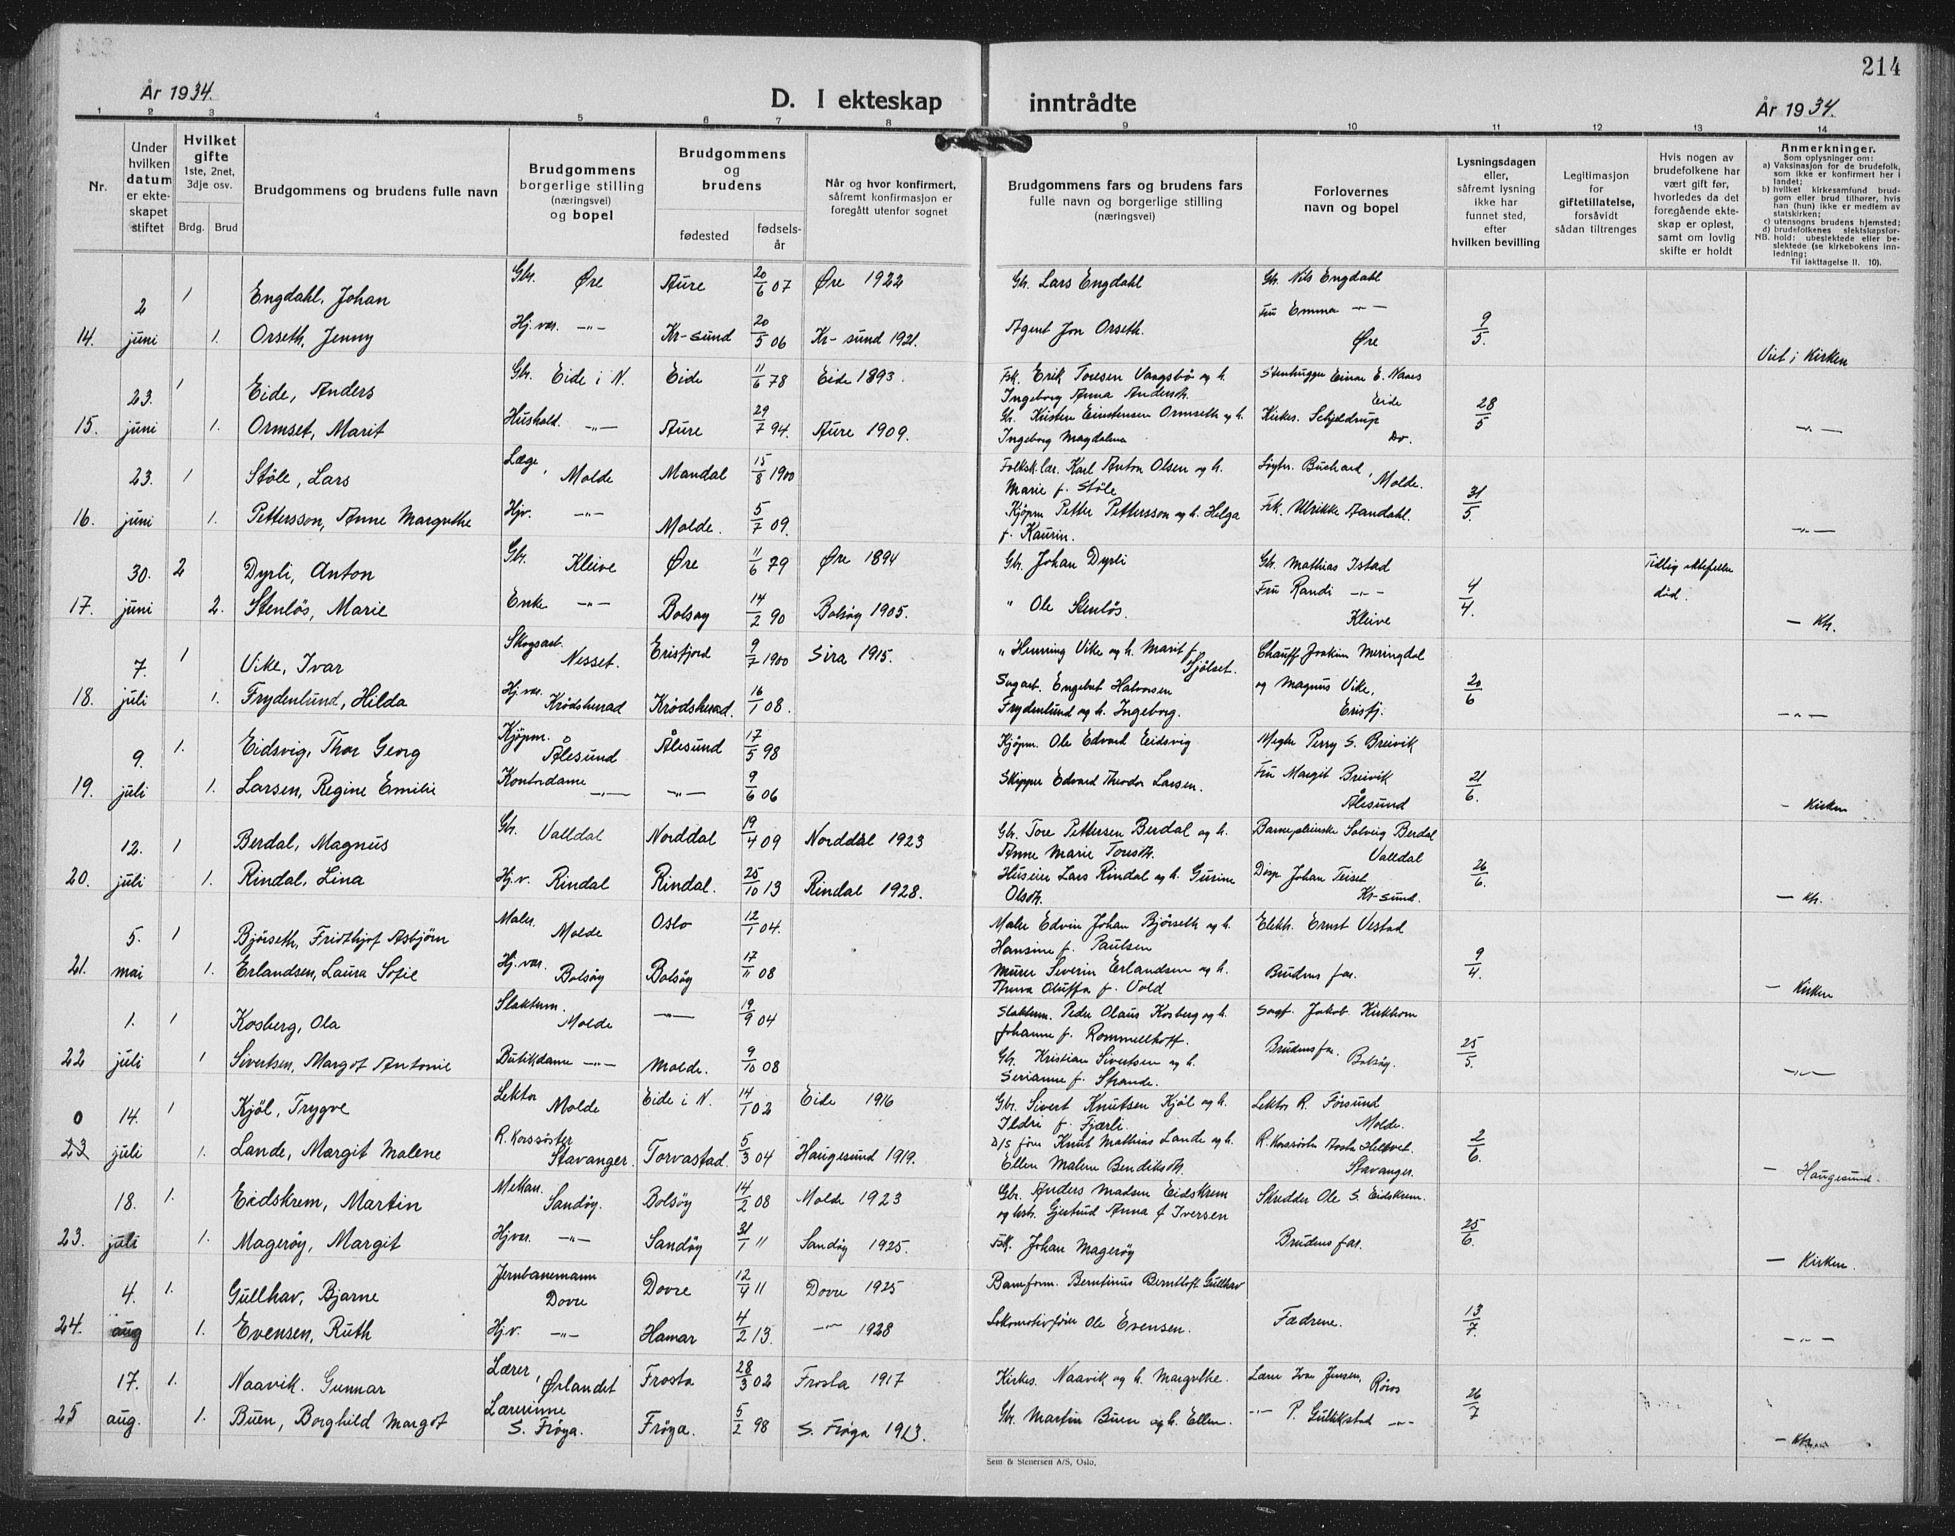 214
År 1934.
D. I ekteskap inntrådte
År 1934.
1 2 3 4 5 6 7 8 9 10 11 12 13 14
Nr.
Under hvilken datum er ekteskapet stiftet
Hvilket gifte 1ste, 2net, 3dje osv.
Brdg. Brud
Brudgommens og brudens fulle navn
Brudgommens borgerlige stilling (næringsvei) og bopel
Brudgommens og brudens
fødested
fødselsår
Når og hvor konfirmert, såfremt konfirmasjon er foregått utenfor sognet
Brudgommens fars og brudens fars fulle navn og borgerlige stilling (næringsvei)
Forlovernes navn og bopel
Lysningsdagen eller, såfremt lysning ikke har funnet sted, efter hvilken bevilling
Legitimasjon for giftetillatelse, forsåvidt sådan tiltrenges
Hvis nogen av brudefolkene har vært gift før, hvorledes da det foregående ekteskap er opløst, samt om lovlig skifte er holdt
Anmerkninger.
Som oplysninger om:
a) Vaksinasjon for de brudefolk, som ikke er konfirmert her i landet;
b) hvilket kirkesamfund brudgom eller brud tilhører, hvis han (hun) ikke er medlem av statskirken;
c) utensogns brudens hjemsted;
d) brudefolkenes slektskapsforhold: ubeslektede eller beslektede (se kirkebokens innledning;
NB. Til iakttagelse II. 10).
2 1 Engdahl, Johan Gbr. Øre Aure 20/6 07 Øre 1922 Gbr. Lars Engdahl Gbr. Nils Engdahl
Fru Emma -"-
14. juni 1. Orseth, Jenny Hj.vær. -"- Kr-sund 20/5 06 Kr-sund 1921. Agent Jon Orseth. Øre 9/5. Viet i Kirken
23. 1 Eide, Anders Gbr. Eide i N. Eide 11/6 78 Eide 1893. Fsk. Erik Toresen Vangsbø og h. Stenhugger Einar E. Naas
Ingeborg Anna Andersdt. Eide
15. juni 1. Ormset, Marit Hushold. -"- Aure 29/7 94. Aure 1909. Gbr. Kristen Einstensen Ormseth og h. Kirkes. Schjeldrup 28/5
Ingeborg Magdalena Do. -"-
23. 1 Støle, Lars Læge, Molde Mandal 15/8 1900 Folksk.lær. Karl Anton Olsen og h. Buchard, Molde.
Marie f. Støle
16. juni 1. Pettersson, Anne Margrethe Hjv. -"- Molde. 5/7 09. Kjøpm Petter Pettersson og h. Helga Frk. Ulrikke Aandahl. 31/5.
f. Kaurin. -"-
30. 2 Dyrli, Anton Gbr. Kleive Øre 11/6 79 Øre 1894 Gbr. Johan Dyrli Gbr. Mathias Istad Tidlig ektefelle
17. juni 2. Stenløs, Marie Enke -"- Bolsøy 14/2 90 Bolsøy 1905. " Ole Stenløs. Fru Randi -"- 4/4. død.
Kleive - Kk.
7. 1 Vike, Ivar Skogsarb. Nesset. Erisfjord 9/7 1900 Sira 1915. " Henning Vike og h. Marit f. Sjølset. Chauff Joakim Meringdal
18. juli 1. Frydenlund, Hilda Hj.vær. Krødsherad Krødsherad. 16/1 08. Sagarb. Engebret Halvorsen og Magnus Vike, 20/6
Frydenlund og h. Ingeborg. Erisfj. -"-
9. 1. Eidsvig, Thor Georg Kjøpm. Ålesund Ålesund 17/5 98 Kjøpm. Ole Edvard Eidsvig Megler Perry S. Breivik
19. juli 1. Larsen, Regine Emilie Kontordame -"- -"- 9/6 06 Skipper Edvard Theodor Larsen. Fru Margit Breivik 21/6.
Ålesund - Kirken
12. 1 Berdal, Magnus Gbr. Valldal Norddal 19/4 09 Norddal 1923 Gbr. Tore Pettersen Berdal og h. Barnepleierske Solveig Berdal
Anne Marie Toresdt. Valldal
20. juli 1. Rindal, Lina Hj.v. Rindal Rindal. 25/10 13 Rindal 1928. Huseier Lars Rindal og h. Gurine Disp. Johan Teiset 26/6.
Olsdt. Kr-sund. - Kk.
5. 1 Bjørseth, Fridthjof Asbjørn Maler. Molde Oslo 12/1 04. Maler Edvin Johan Bjørseth og h. Elektr. Ernst Vestad
Hansine f. Paulsen
21. mai 1. Erlandsen, Laura Sofie Hj.vær. Bolsøy Bolsøy 17/11 08 Murer Severin Erlandsen og h. Brudens far. 9/4.
Anna Oluffa f. Vold - Kirken
1. 1 Kosberg, Ola Slakterm. Molde -"- 19/9 04 Slakterm. Peder Olaus Kosberg og h. Sagf. Jakob Kirkhorn
Johanne f. Rommelhoff.
22 juli 1 Sivertsen, Margot Antonie Butikdame -"- Molde. 9/10 08 Gbr. Kristian Sivertsen og h. Brudens far. Bolsøy. 25/5.
Serianne f. Strande. -"-
0 14. 1 Kjøl, Trygve Lektor Molde Eide i N. 14/1 02 Eide 1916 Gbr. Sivert Knutsen Kjøl og h. Lektor R. Försund
Ildri f. Fjærli. Molde.
23 juli 1. Lande, Margit Malene R. Korssøster Stavanger. Torvastad. 5/3 04 Haugesund 1919. D/S fører Knut Mathias Lande og h. R. Korssøster 2/6.
Ellen Malene Bendiksdt. Stavanger. - Haugesund.
18. 1. Eidskrem, Martin Mekan. Sandøy. Bolsøy 14/2 08 Molde 1923 Gbr. Anders Madsen Eidskrem Skredder Ole S. Eidskrem.
og hstr. Gjertrud Anna f Iversen
23. juli 1. Magerøy, Margit Hj.vær. -"- Sandøy 31/1 11 Sandøy 1925. Fsk. Johan Magerøy Brudens far. 25/6.
- Kirken.
4. 1. Gullhav, Bjarne Jernbanemann Dovre Dovre 12/4 11 Dovre 1925 Baneform. Berntinus Berntloft Gullhav
24. aug 1. Evensen, Ruth Hj.v. -"- Hamar 4/2 13. -"- 1928 Lokomotivfører Ole Evensen. Fædrene. 13/7. -"-
17. 1. Naavik. Gunnar Lærer, Ørlandet Frosta 28/3 02 Frosta 1917 Kirkes. Naavik og h. Margrethe. Lærer Ivar Jensen, Røros
25 aug. 1. Buen, Borghild Margot Lærerinne S. Frøya. Frøya. 5/2 98 S. Frøya 1913. Gbr. Martin Buen og h. Ellen. -"- P. Gullikstad -"- 26/7
- Kk.
Sem & Stenersen A/S, Oslo.